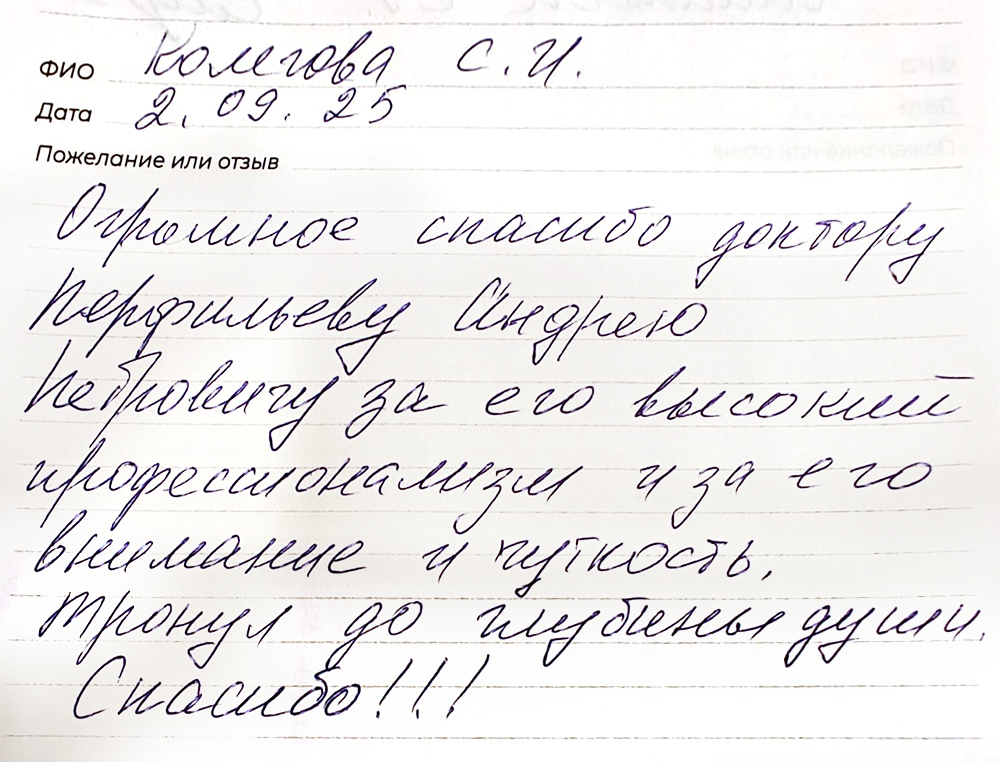 ФИО Колегова С.И.
Дата 2.09.25
Пожелание или отзыв
Огромное спасибо доктору
Перфильеву Андрею
Петровичу за его высокий
профессионализм и за его
внимание и чуткость.
тронул до глубины души.
Спасибо!!!